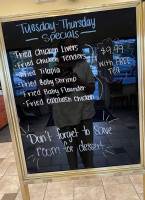 Tuesday-Thursday
Specials
Fried Chicken Livers
Fried Chicken Tenders
Fried Tilapia
Fried Baby Shrimp
Fried Baby Flounder
Chicken
$9.99
with
Tea
Don't forget to save
room for dessert